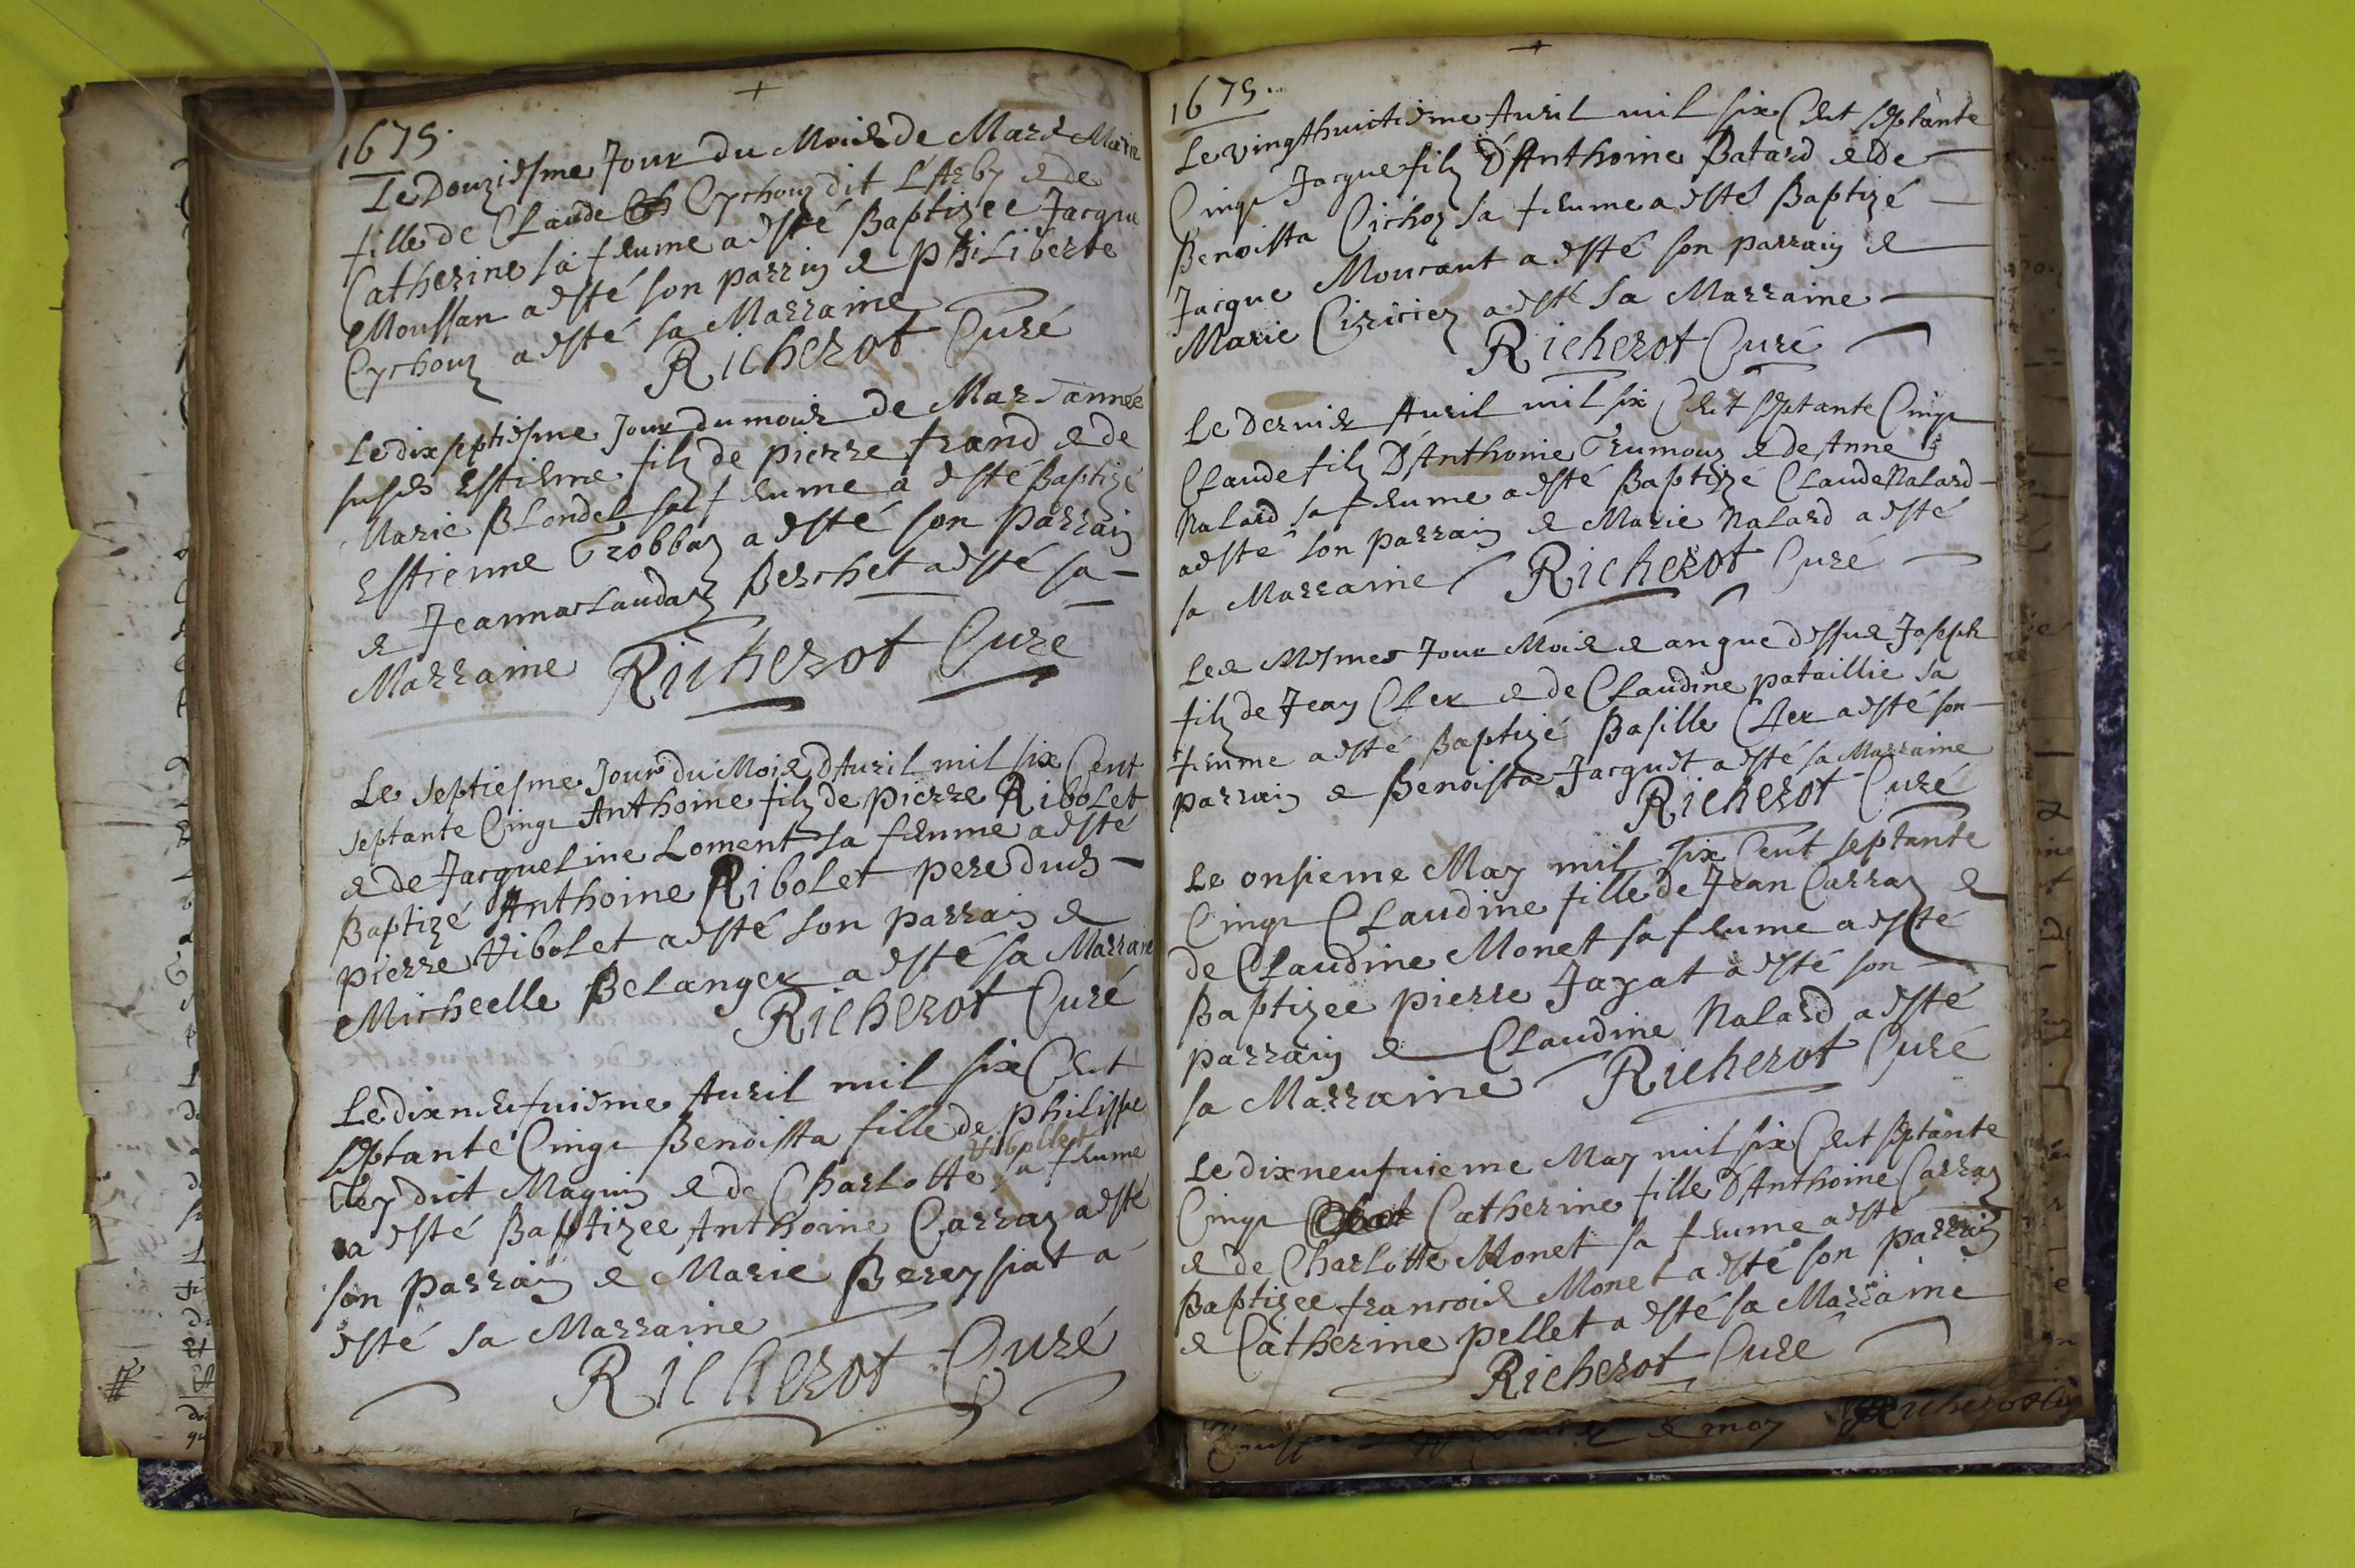 1675.
Le Douziesme Jour du Mois de Mars Marie
fille de Claude Cychouz dit L'Arby & de
Catherine sa femme a esté Baptizee Jacque
Moussan a esté son parrin & Philiberte
Cychouz a esté sa Marraine
Richerot Curé
Le dix septiesme Jour du mois de Mars année
susd Estienne filz de pierre frand & de
Marie Blondel sa femme a esté Baptizé
Estienne Trobbaz a esté son parrain
& Jeanna Berchet a esté sa
Marraine Richerot Curé
Le Septiesme Jour du Mois d'Auril mil six Cent
septante Cinqz Anthoine filz de pierre Ribolet
& de Jacqueline Loment sa femme a esté
Baptizé Anthoine Ribolet pere dud
pierre Ribolet a esté son parrain &
Micheelle Belanger a esté sa Marraine
Richerot Curé
Le dix neufuieme Auril mil six Cent
septante Cinqz Benoista fille de philippe
Rey dit Magnin & de Charlotte sa femme
a esté Baptizee Anthoine Carraz a esté
son parrain & Marie Bereysiat a
esté sa Marraine
Richerot Curé
1675.
Le vingthuictieme Auril mil six Cent septante
Cinqz Jacque filz D'Anthoine Batard & de
Benoista Cichoz sa femme a esté Baptizé
Jacque Moucant a esté son parrain &
Marie a esté sa Marraine
Richerot Curé
Le Dernier Auril mil six Cent septante Cinqz
Claude filz D'Anthoine Trumouz & de Anne
Nalard sa femme a esté Baptizé Claude Nalard
a esté son parrain & Marie Nalard a esté
sa Marraine Richerot Curé
Les Mesmes Jour Mois & an que dessus Joseph
filz de Jean Cler & de Claudine pataillie sa
femme a esté Baptizé Basille Cler a esté son
parrain & Benoista Jacquet a esté sa Marraine
Richerot Curé
Le onsieme May mil six Cent septante
Cinqz Claudine fille de Jean Carraz &
de Claudine Monet sa femme a esté
Baptizee pierre Jayat a esté son
parrain & Claudine Nalard a esté
sa Marraine Richerot Curé
Le dixneufuieme May mil six Cent septante
Cinqz Catherine fille D'Anthoine Carraz
& de Charlotte Monet sa femme a esté
Baptizee francois Monet a esté son parrain
& Catherine pellet a esté sa Marraine
Richerot Curé
& moy Richerot